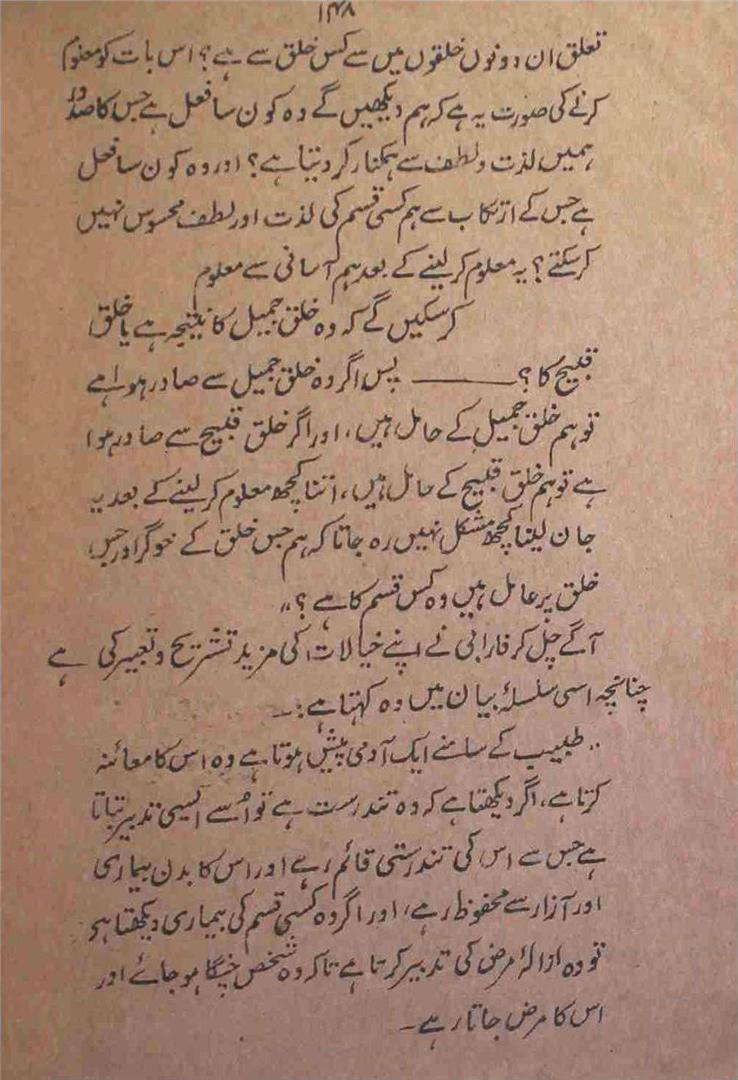 ۱۴۸
تعلق ان دونوں خلقوں میں سے کس خلق سے ہے؟ اس بات کو معلوم
کرنے کی صورت یہ ہے کہ ہم دیکھیں گے وہ کون سا فعل ہے جس کا صدور
ہمیں لذت و لطف سے ہمکنار کر دیتا ہے؟ اور وہ کون سا فعل
ہے جس کے ارتکاب سے ہم کسی قسم کی لذت اور لطف محسوس نہیں
کر سکتے؟ یہ معلوم کر لینے کے بعد ہم آسانی سے معلوم
کر سکیں گے کہ وہ خلق جمیل کا نتیجہ ہے یا خلق
قبیح کا؟ ——— پس اگر وہ خلق جمیل سے صادر ہوا ہے
تو ہم خلق جمیل کے حامل ہیں، اور اگر خلق قبیح سے صادر ہوا
ہے تو ہم خلق قبیح کے حامل ہیں، اتنا کچھ معلوم کر لینے کے بعد یہ
جان لینا کچھ مشکل نہیں رہ جاتا کہ ہم جس خلق کے خوگر اور جس
خلق پر عامل ہیں وہ کس قسم کا ہے؟"
آگے چل کر فارابی نے اپنے خیالات کی مزید تشریح و تعبیر کی ہے
چنانچہ اسی سلسلۂ بیان میں وہ کہتا ہے:۔
"طبیب کے سامنے ایک آدمی پیش ہوتا ہے وہ اس کا معائنہ
کرتا ہے، اگر دیکھتا ہے کہ وہ تندرست ہے تو اُسے ایسی تدبیر بتاتا
ہے جس سے اس کی تندرستی قائم رہے اور اس کا بدن بیماری
اور آزار سے محفوظ رہے، اور اگر وہ کسی قسم کی بیماری دیکھتا ہے
تو وہ ازالۂ مرض کی تدبیر کرتا ہے تاکہ وہ شخص چنگا ہو جائے اور
اس کا مرض جاتا رہے۔